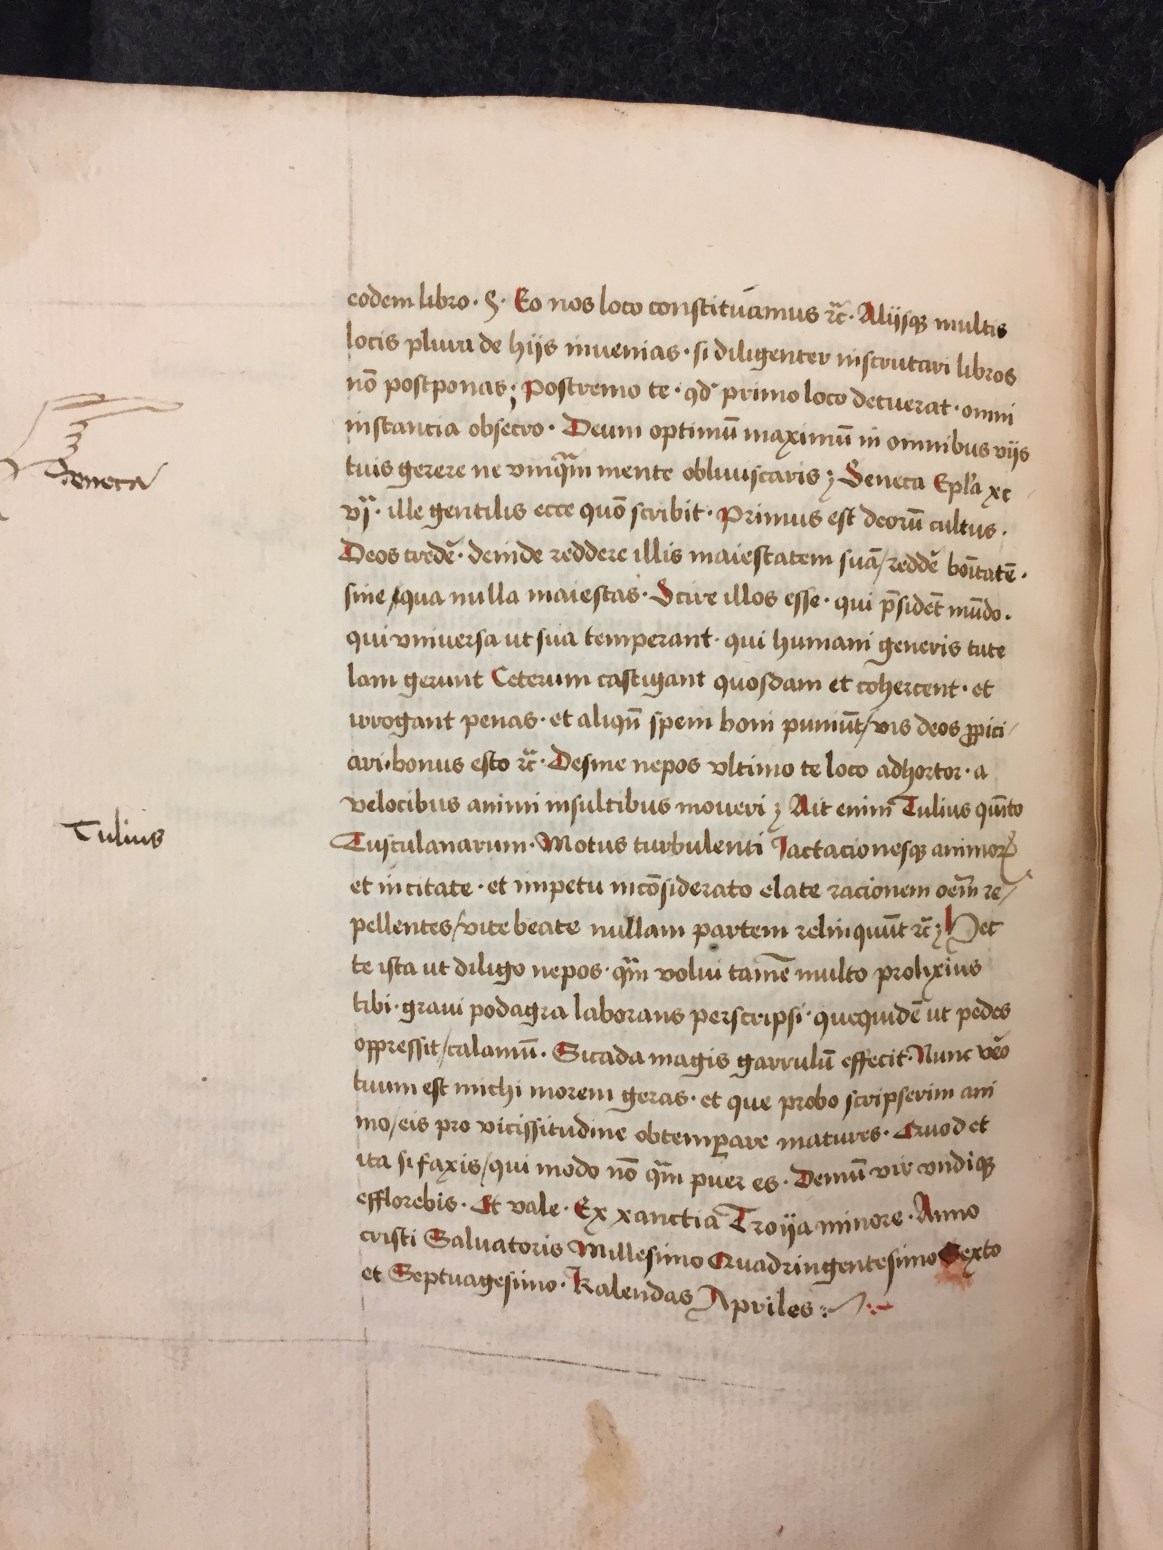 eodem libro · S · Eo nos loco constituamus ⁊c̄ · Aliisq multis
locis plura de hijs inuenias · si diligenter inscrutari libros
nō postponas ; Postremo te · qd' primo loco decuerat · omni
instantia obsecro · Deum optimū maximū in omnibus viis
Seneca
tuis gerere ne vmqm̄ mente obliuiscaris ; Seneca Epl'a xc
vj · ille gentilis ecce quō scribit · Primus est deorū cultus ·
Deos credē · deinde reddere illis maiestatem suā / reddē boītatē ·
sine / qua nulla maiestas · Scire illos esse · qui p̄sidēt mūdo ·
qui vniuersa ut sua temperant · qui humani generis tute
lam gerunt Ceterum castigant quosdam et cohercent · et
irrogant penas · et aliqn̄ spem boni puniūt / vis deos ꝓpici /
ari · bonus esto ⁊c̄ · Desine nepos vltimo te loco adhortor · a
velocibus animi insultibus moueri ; Ait enim Tulius quīto
Tulius
Tusculanarum · Motus turbulenti Jactacionesq animorꝝ
et incitate · et impetu incōsiderato elate racionem oem̄ re /
pellentes / vite beate nullam partem relinquūt ⁊c̄ ; Hec
te ista ut diligo nepos · qm̄ volui tamē multo prolixius
tibi · graui podagra laborans perscripsi · quequidē ut pedes
oppressit / calamū · Sicada magis garrulū effecit · Nunc vēo
tuum est michi morem geras · et que probo scripserim ani
mo / eis pro vicissitudine obtemꝑare matures · Quod et
ita si faxis / qui modo nō qm̄ puer es · Demū vir vndiq
efflorebis · Et vale · Ex xanctia Troija minore · Anno
cristi Saluatoris Millesimo Quadringentesimo Sexto
et Septuagesimo · Kalendas Apriles